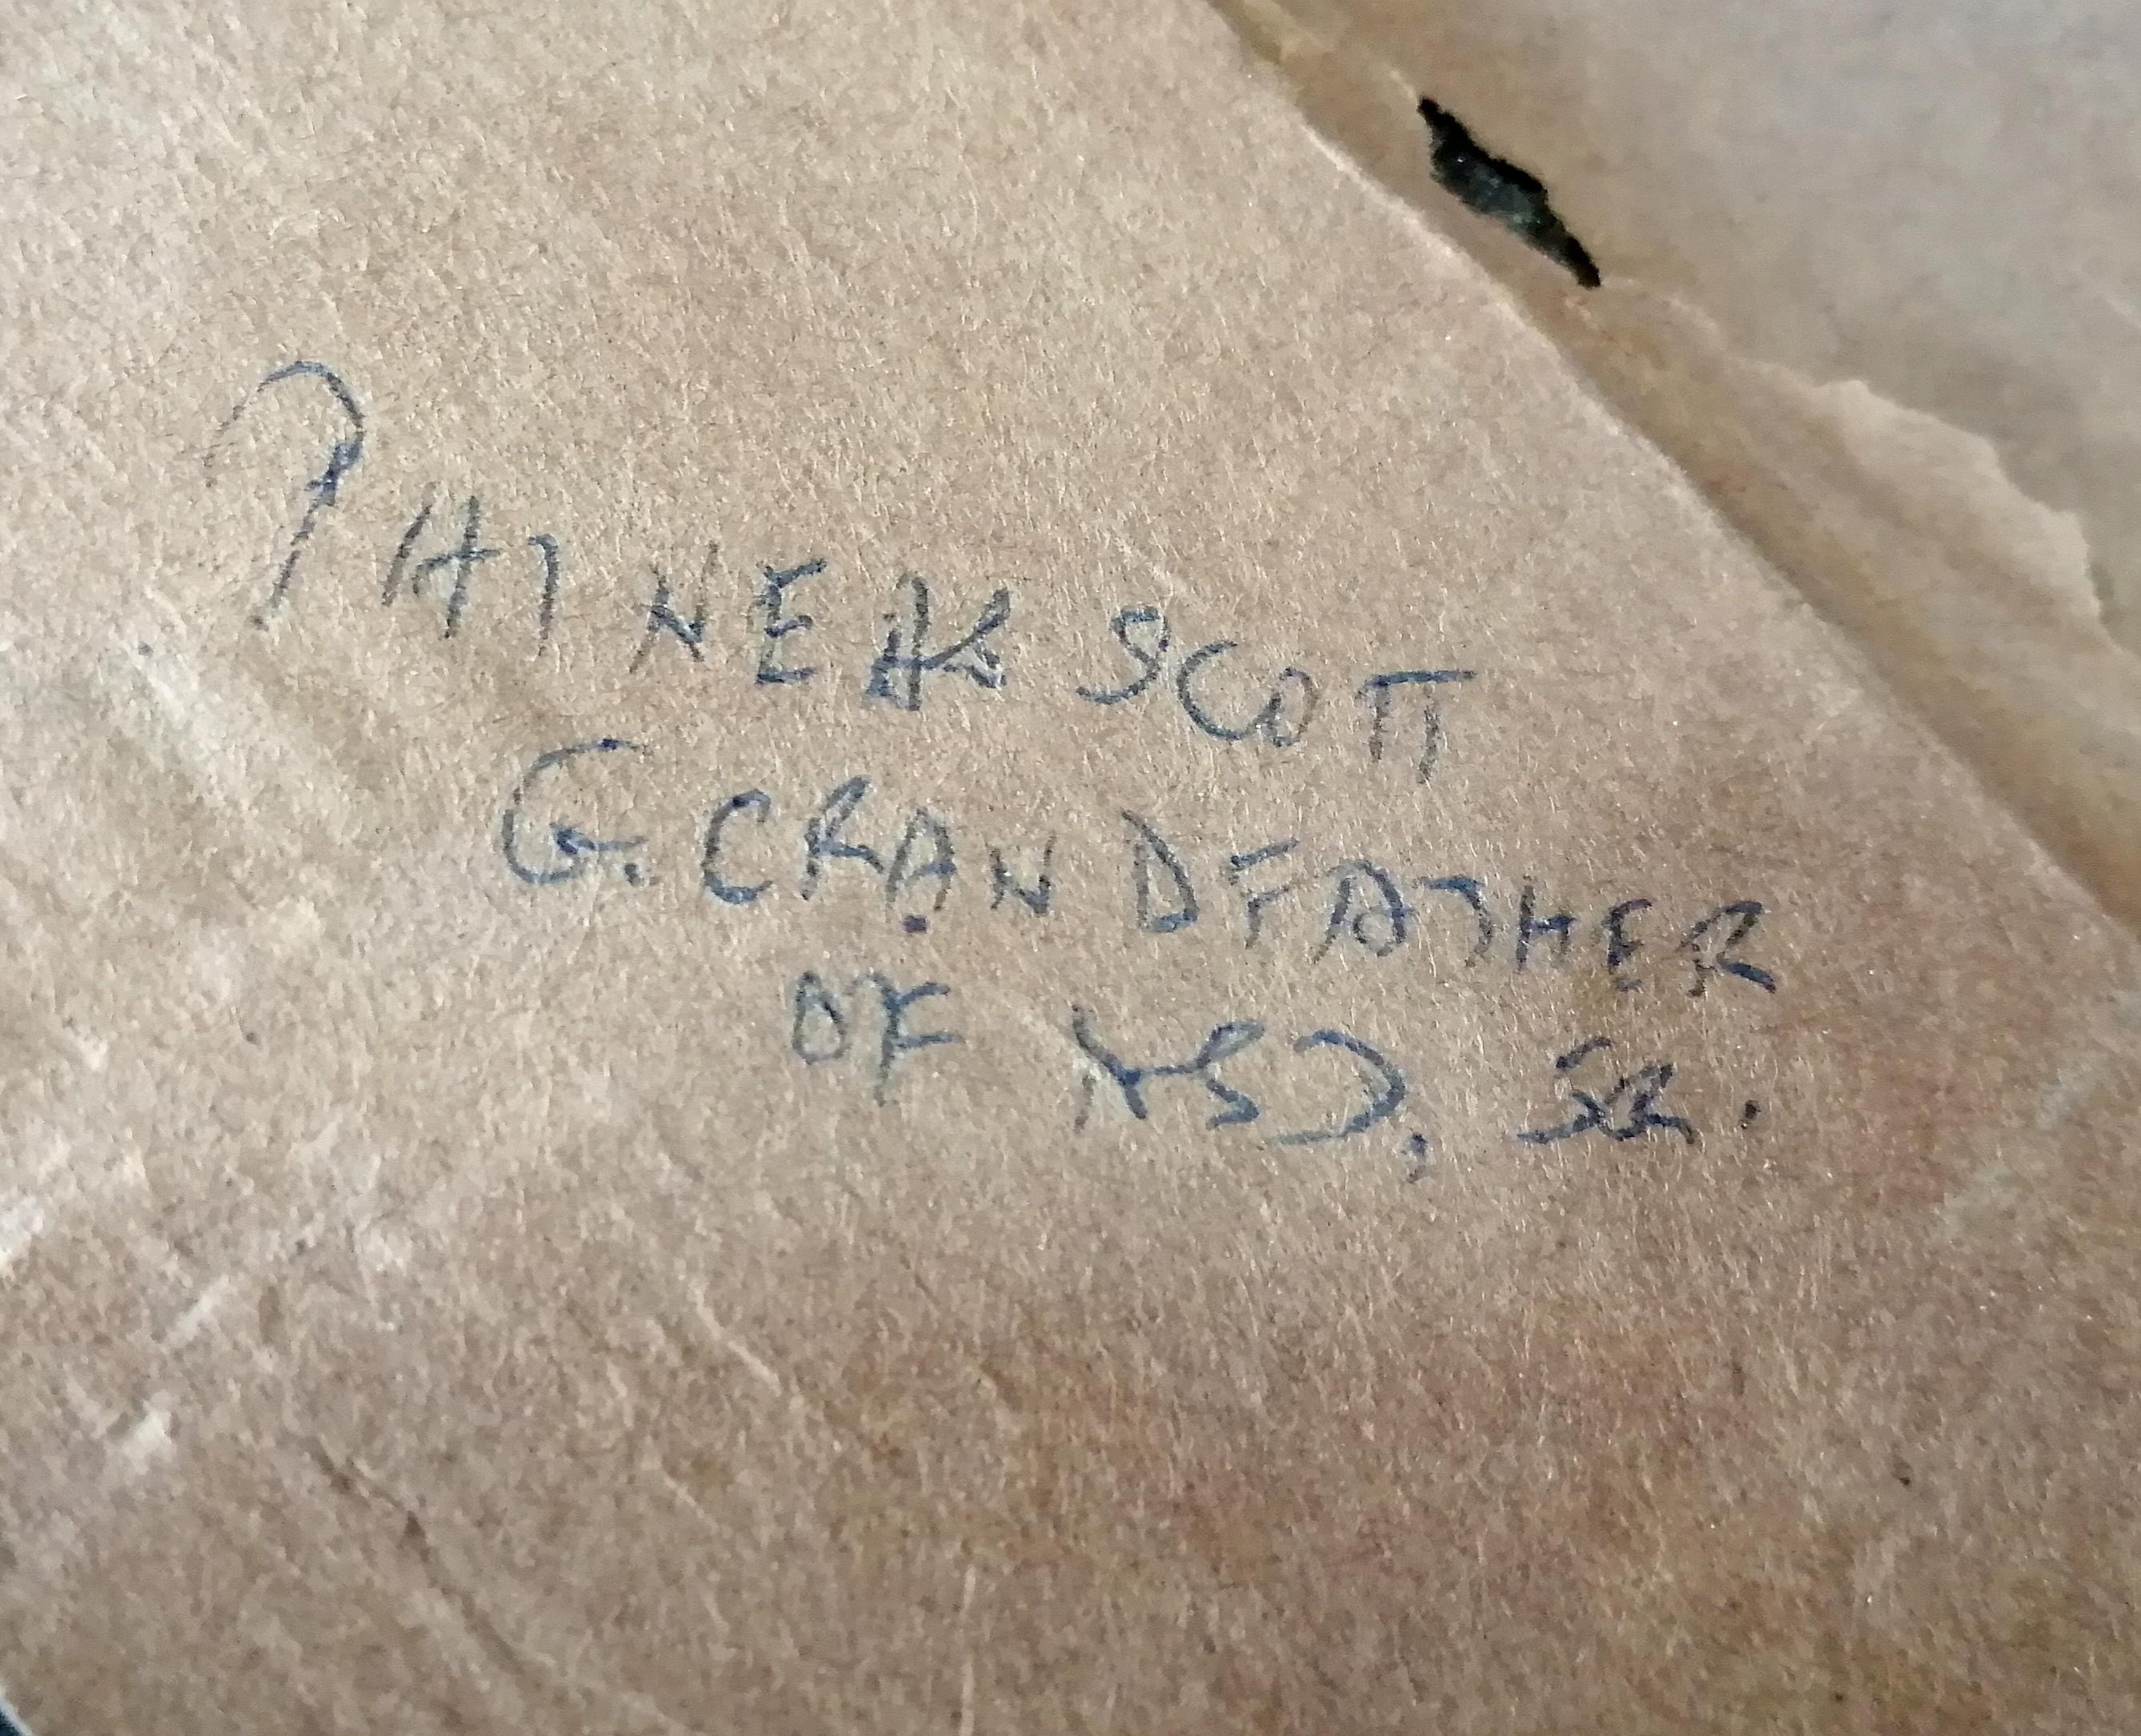 PHINEAS SCOTT
G. GRANDFATHER
OF HSD, SR.